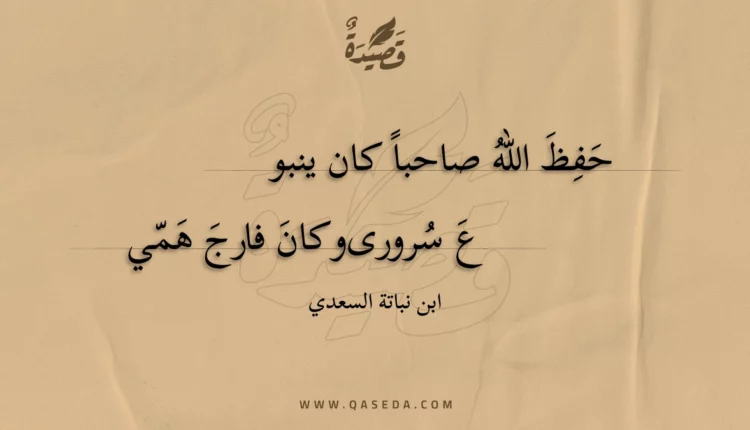 قَصِيدَةٌ
حَفِظَ اللهُ صاحباً كان ينبو
عَ سُرورى وكانَ فارجَ هَمّي
ابن نباتة السعدي
WWW.QASEDA.COM